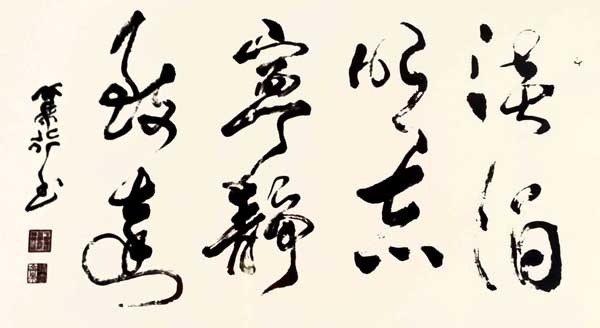 淡泊
明志
寧靜
致遠